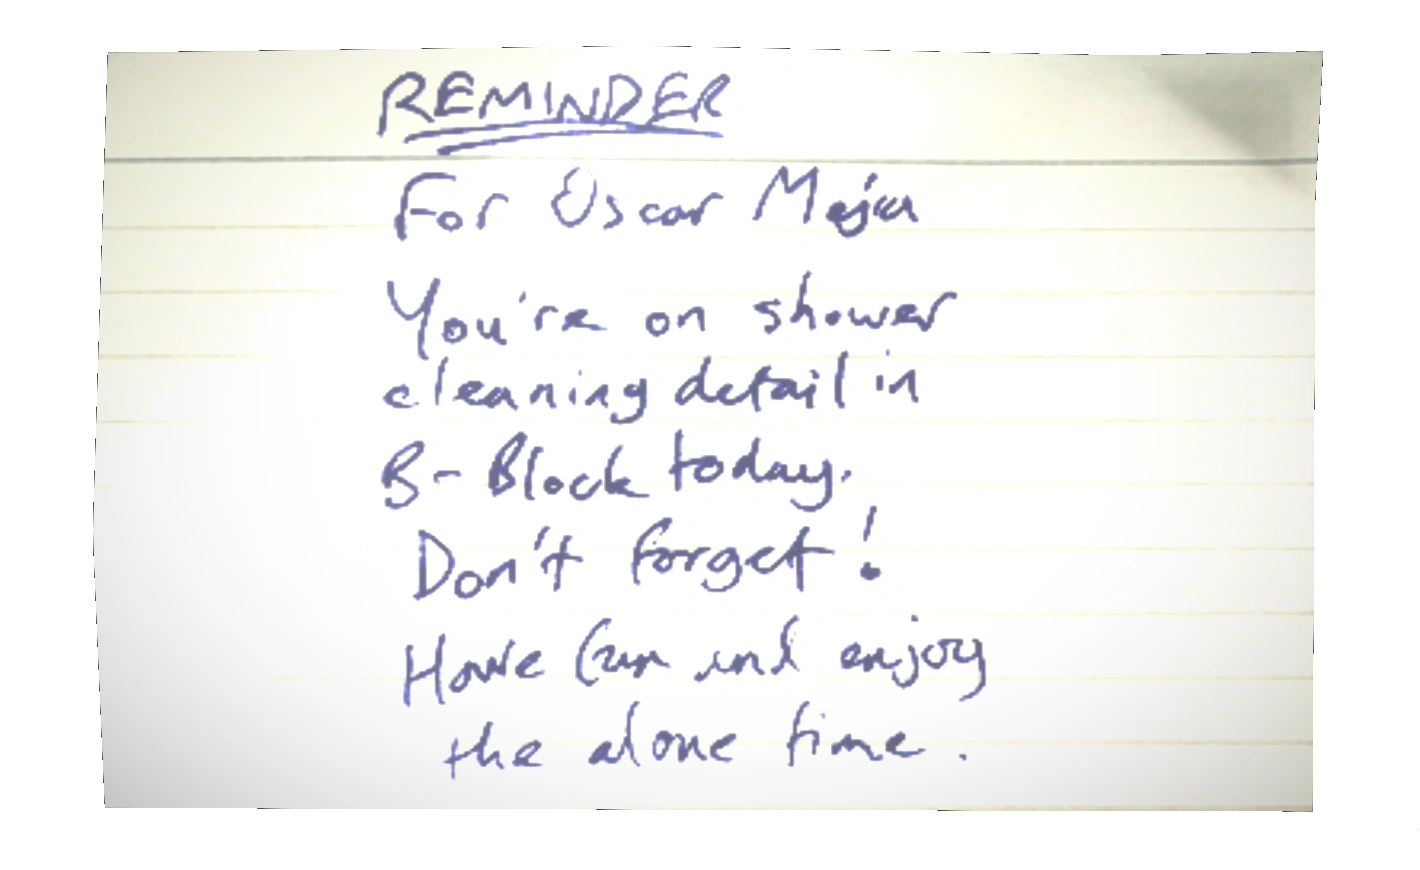 REMINDER
For Oscar Mejia
You're on shower
cleaning detail in
B-Block today.
Don't forget!
Have fun and enjoy
the alone time.